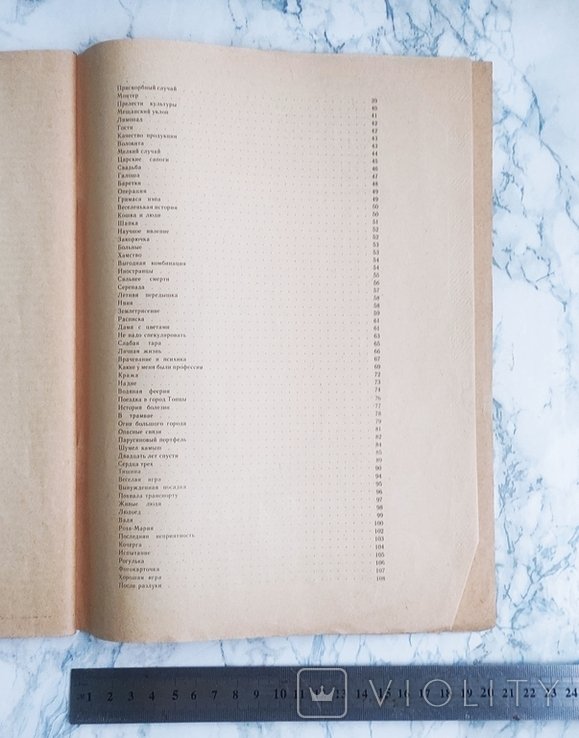 Прискорбный случай
Монтер 39
Прелести культуры 40
Мещанский уклон 41
Лимонад 42
Гости 42
Качество продукции 43
Волокита 43
Мелкий случай 44
Царские сапоги 45
Свадьба 46
Галоша 47
Баретки 48
Операция 49
Гримаса нэпа 49
Веселенькая история 50
Кошка и люди 50
Шапка 51
Научное явление 52
Закорючка 52
Больные 53
Хамство 53
Выгодная комбинация 54
Иностранцы 54
Сильнее смерти 55
Серенада 56
Летняя передышка 57
Няня 58
Землетрясение 58
Расписка 59
Дама с цветами 61
Не надо спекулировать 61
Слабая тара 63
Личная жизнь 65
Врачевание и психика 66
Какие у меня были профессии 67
Кража 69
На дне 72
Водяная феерия 73
Поездка в город Топцы 74
История болезни 76
В трамвае 77
Огни большого города 78
Опасные связи 79
Парусиновый портфель 81
Шумел камыш 82
Двадцать лет спустя 84
Сердца трех 85
Тишина 89
Веселая игра 90
Вынужденная посадка 94
Похвала транспорту 95
Живые люди 96
Людоед 97
Вадя 98
Роза-Мария 99
Последняя неприятность 100
Кочерга 102
Испытание 103
Рогулька 104
Фотокарточка 105
Хорошая игра 106
После разлуки 107
108
1 2 3 4 5 6 7 8 9 10 11 12 13 14 15 16 17 18 19 20 21 22 23 24
VIOLITY